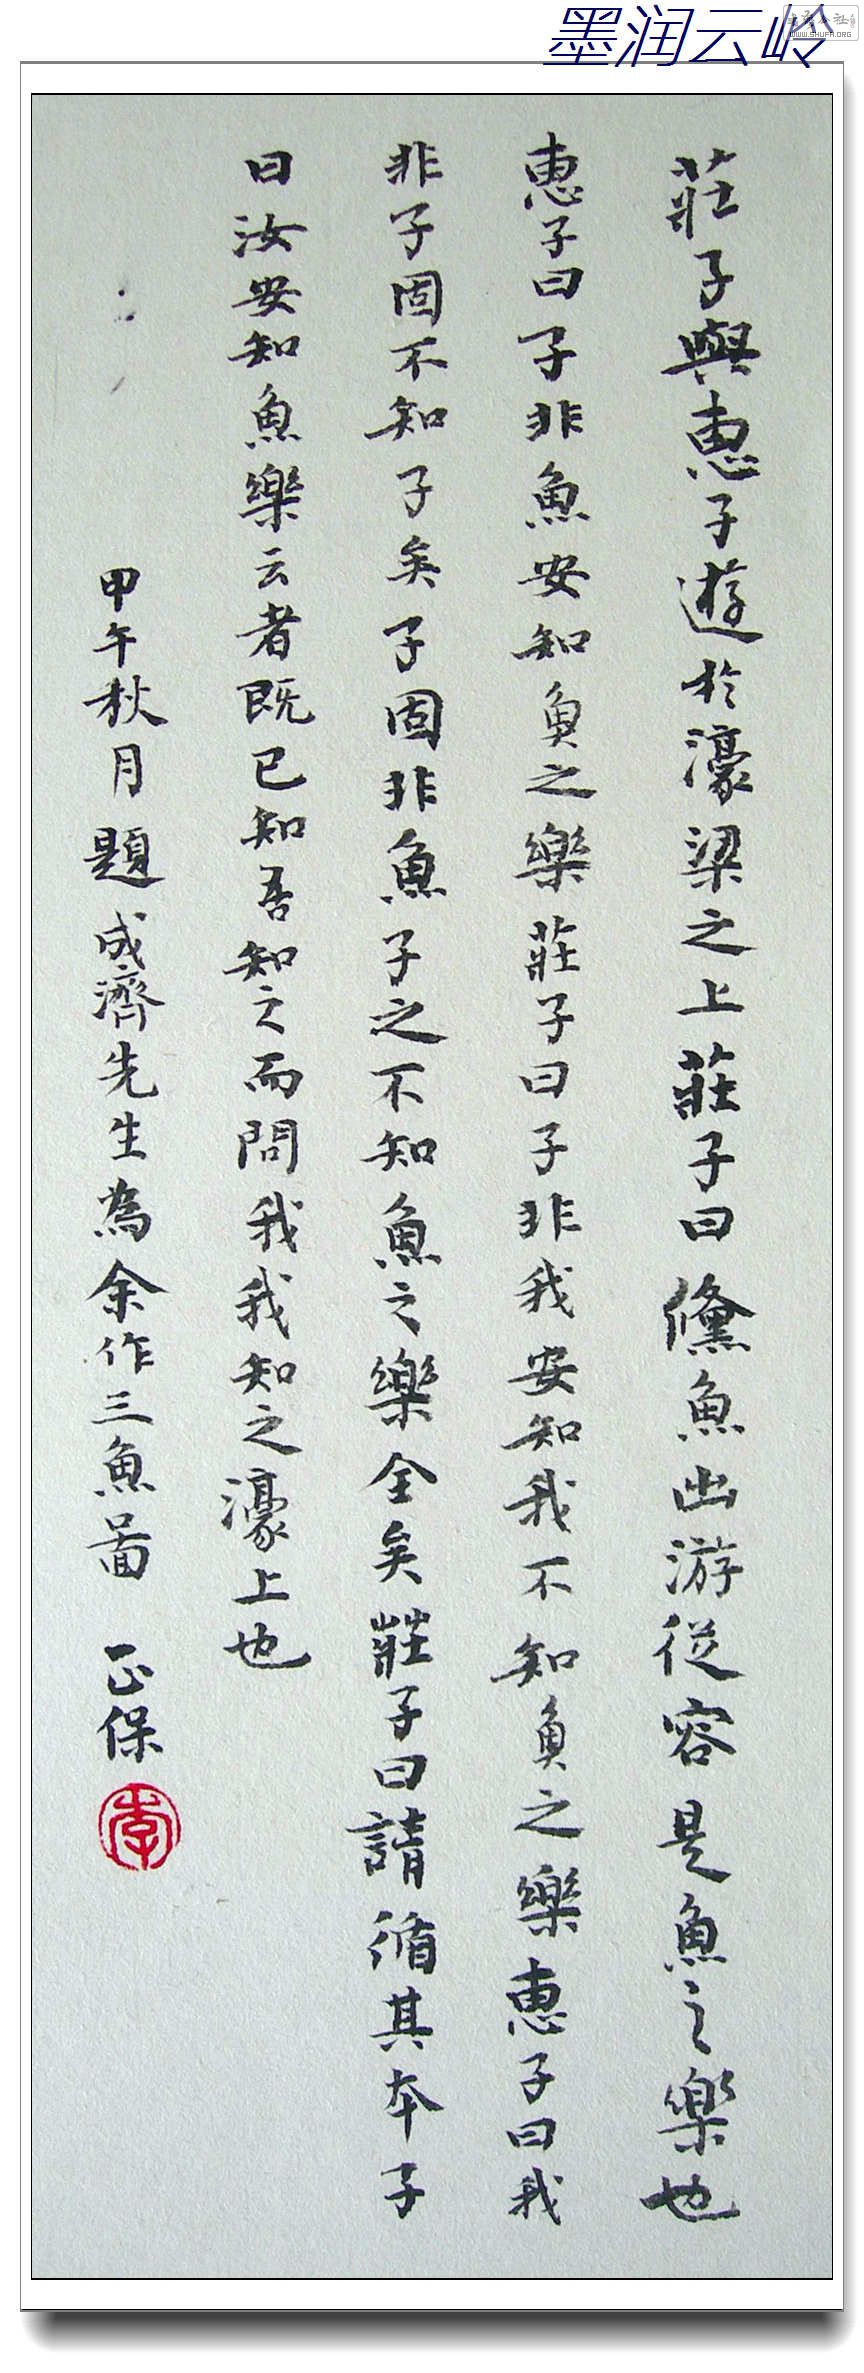 墨润云岭
WWW.SHUFA.ORG
莊子與惠子遊於濠梁之上莊子曰鯈魚出游從容是魚之樂也
惠子曰子非魚安知魚之樂莊子曰子非我安知我不知魚之樂惠子曰我
非子固不知子矣子固非魚子之不知魚之樂全矣莊子曰請循其本子
曰汝安知魚樂云者既已知吾知之而問我我知之濠上也
甲午秋月題成濟先生為余作三魚圖 正保
李